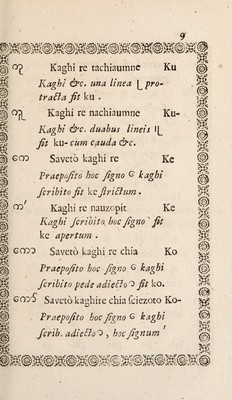 9
ကျ Kaghi re tachiaumne Ku
Kaghi &c. una linea ⎩ pro-
tracta fit ku .
Kaghi re nachiaumne Ku-
Kaghi &c. duabus lineis
fit ku- cum cauda &c.
Savetò kaghi re Ke
Præposito hoc signo G kaghi
scribito fit ke strictum .
Kaghi re nauzopit Ke
Kaghi scribito, hoc signo ' fit
ke apertum .
Savetò kaghi re chia Ko
Præposito hoc signo G kaghi
scribito pede adiecto fit ko.
Savetò kaghire chia sciezoto Ko-
Præposito hoc signo G kaghi
scrib. adiecto , hoc signum '